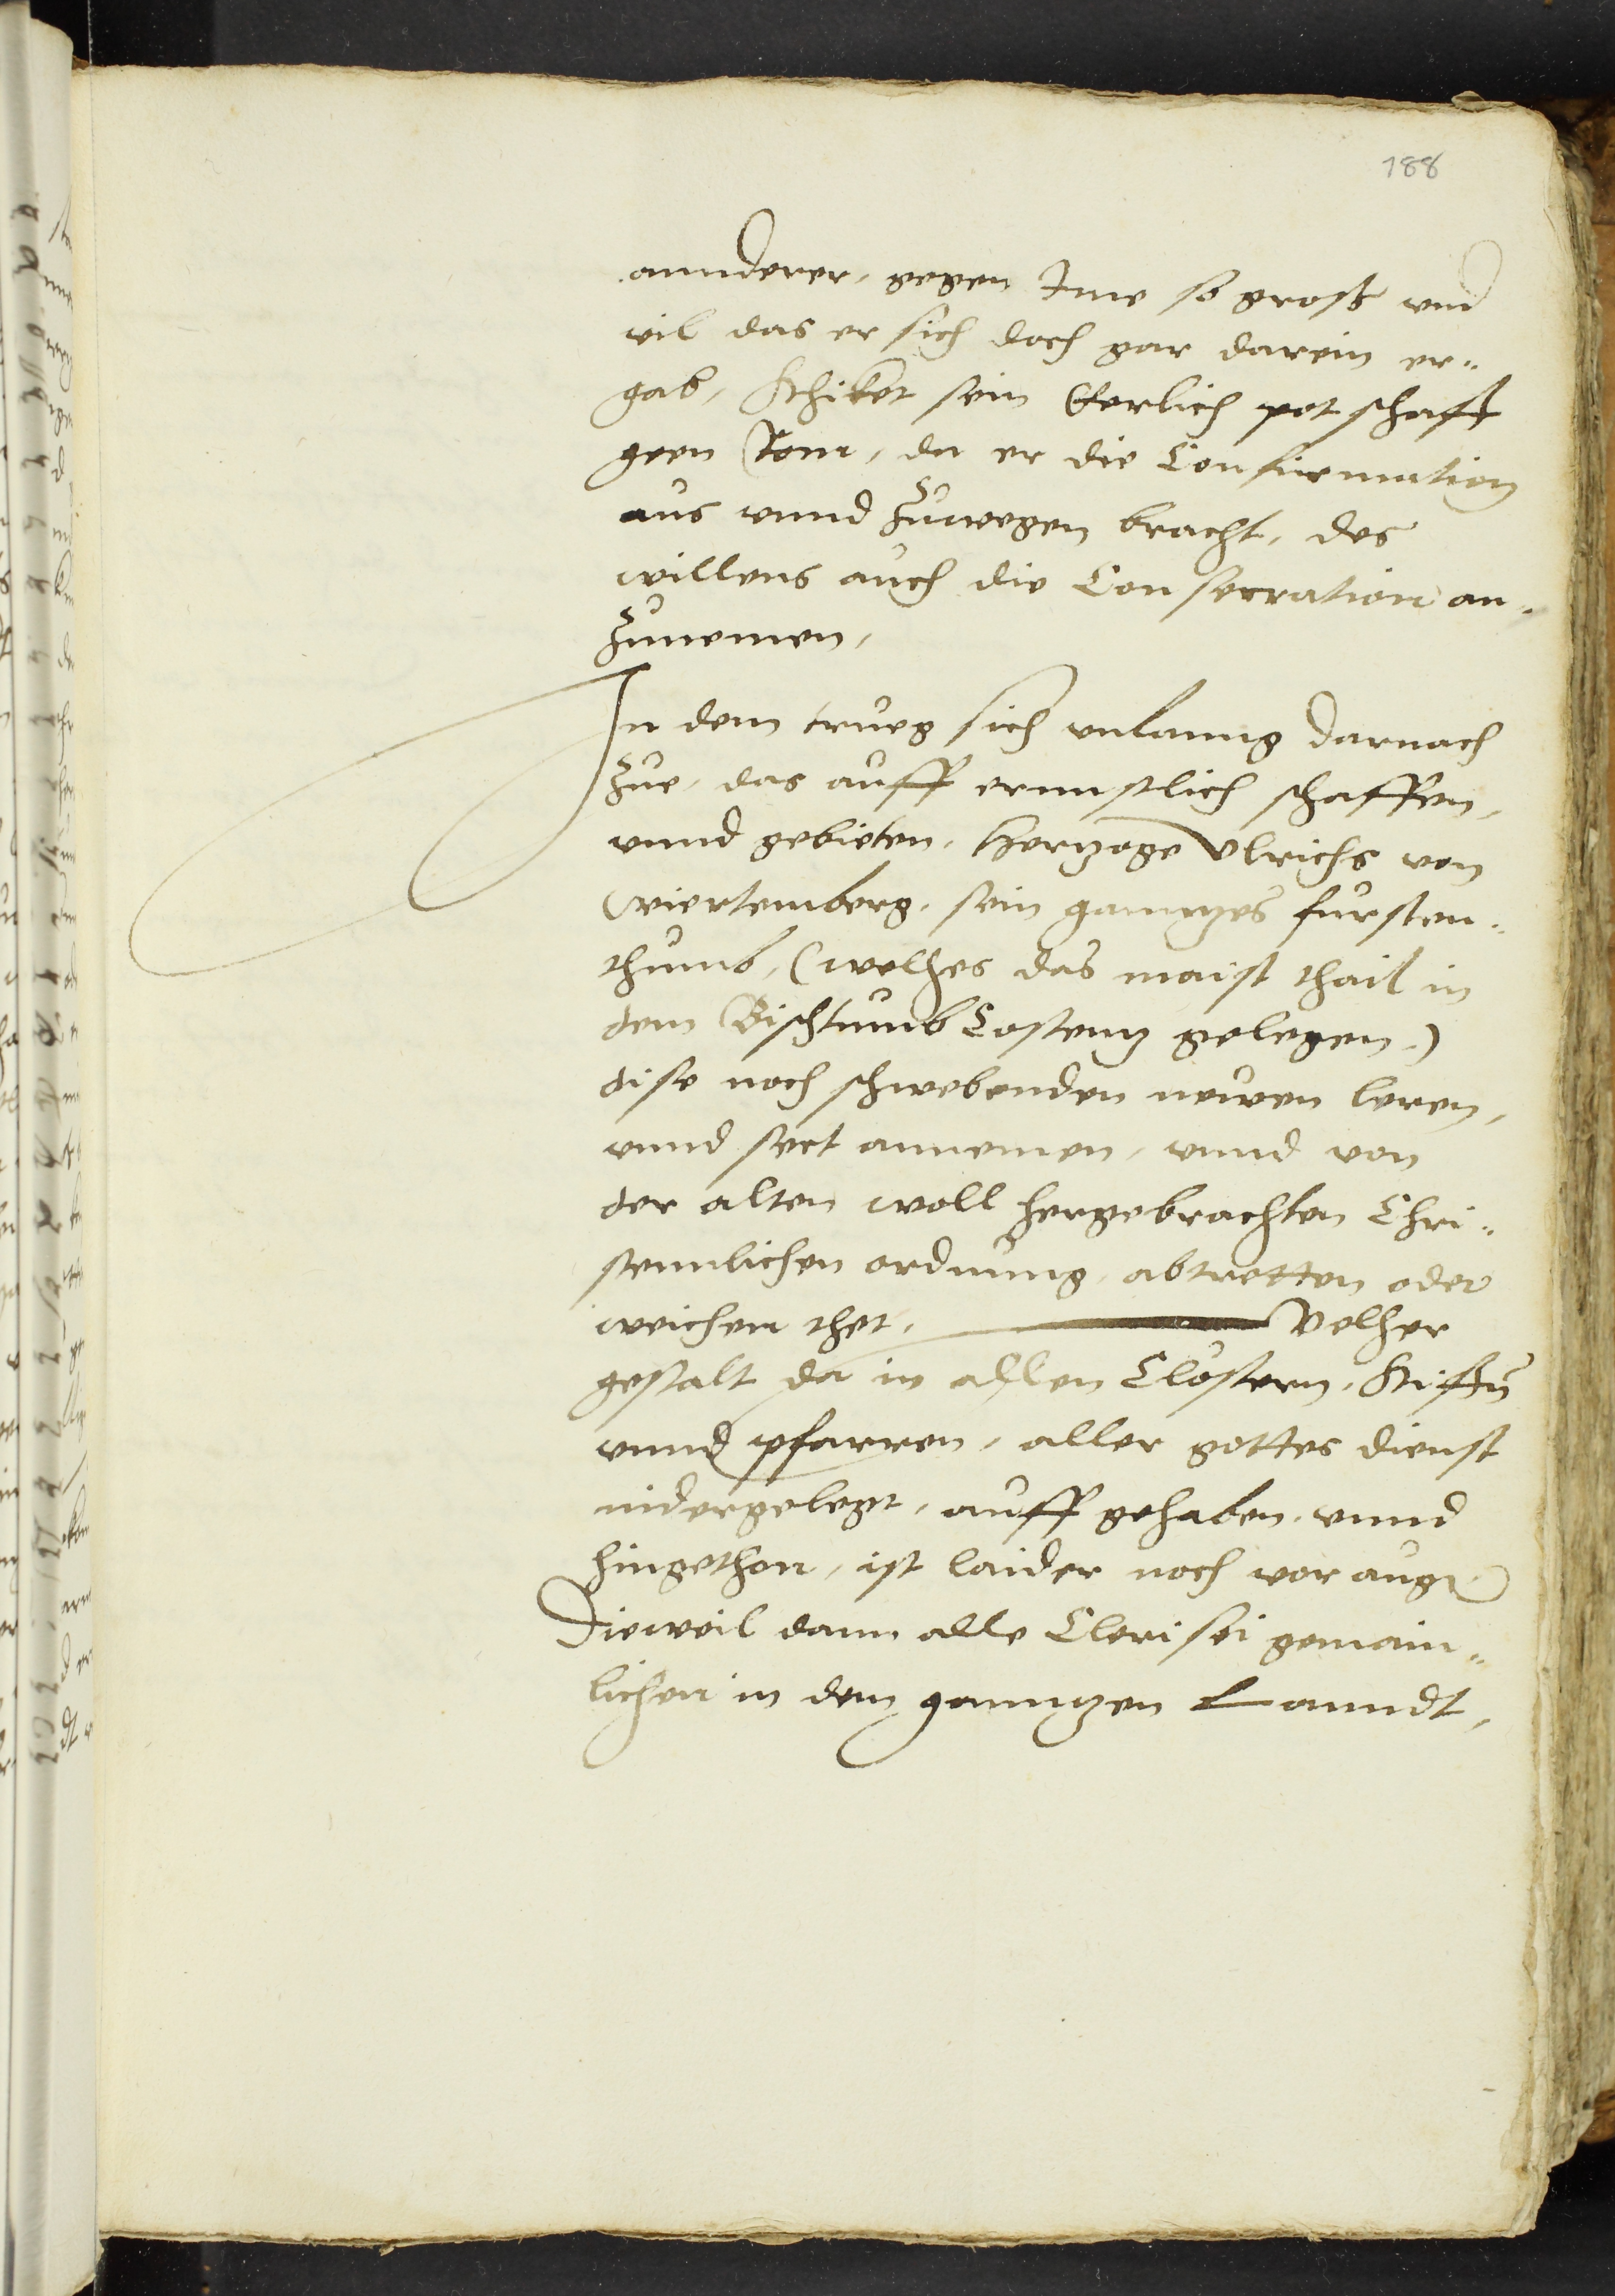 188
annderer, gegen Ime so groß vnd
vil das er sich doch gar darein er¬
gab, schiket sein Eerlich potschafft
geen Rom, da er die Confirmation
aus vnnd zuwegen bracht, des
willens auch die Consecration an¬
zunemen,
In dem trueg sich vnlanng darnach
zue, das auff ernnstlich schaffen,
vnnd gebieten, Hertzoge Vlrichs von
Wiertemberg, sein ganntzes fursten¬
thumb, (welhes das maist thail in
dem Bischtumb Costentz gelegen)
dise noch schwebenden newen leren,
vnnd sect annemen, vnnd von
der alten woll hergebrachten Chri¬
stennlichen ordnung, abtretten oder
weichen thet, Welher
gestalt da in allen Clostern, Stifftn
vnnd pfarren, aller gottes dienst
nidergelegt, auff gehaben, vnnd
hingethon, ist laider noch vor augen
Dieweil dann alle Clerisei gemain¬
lichen in dem ganntzen Lanndt,